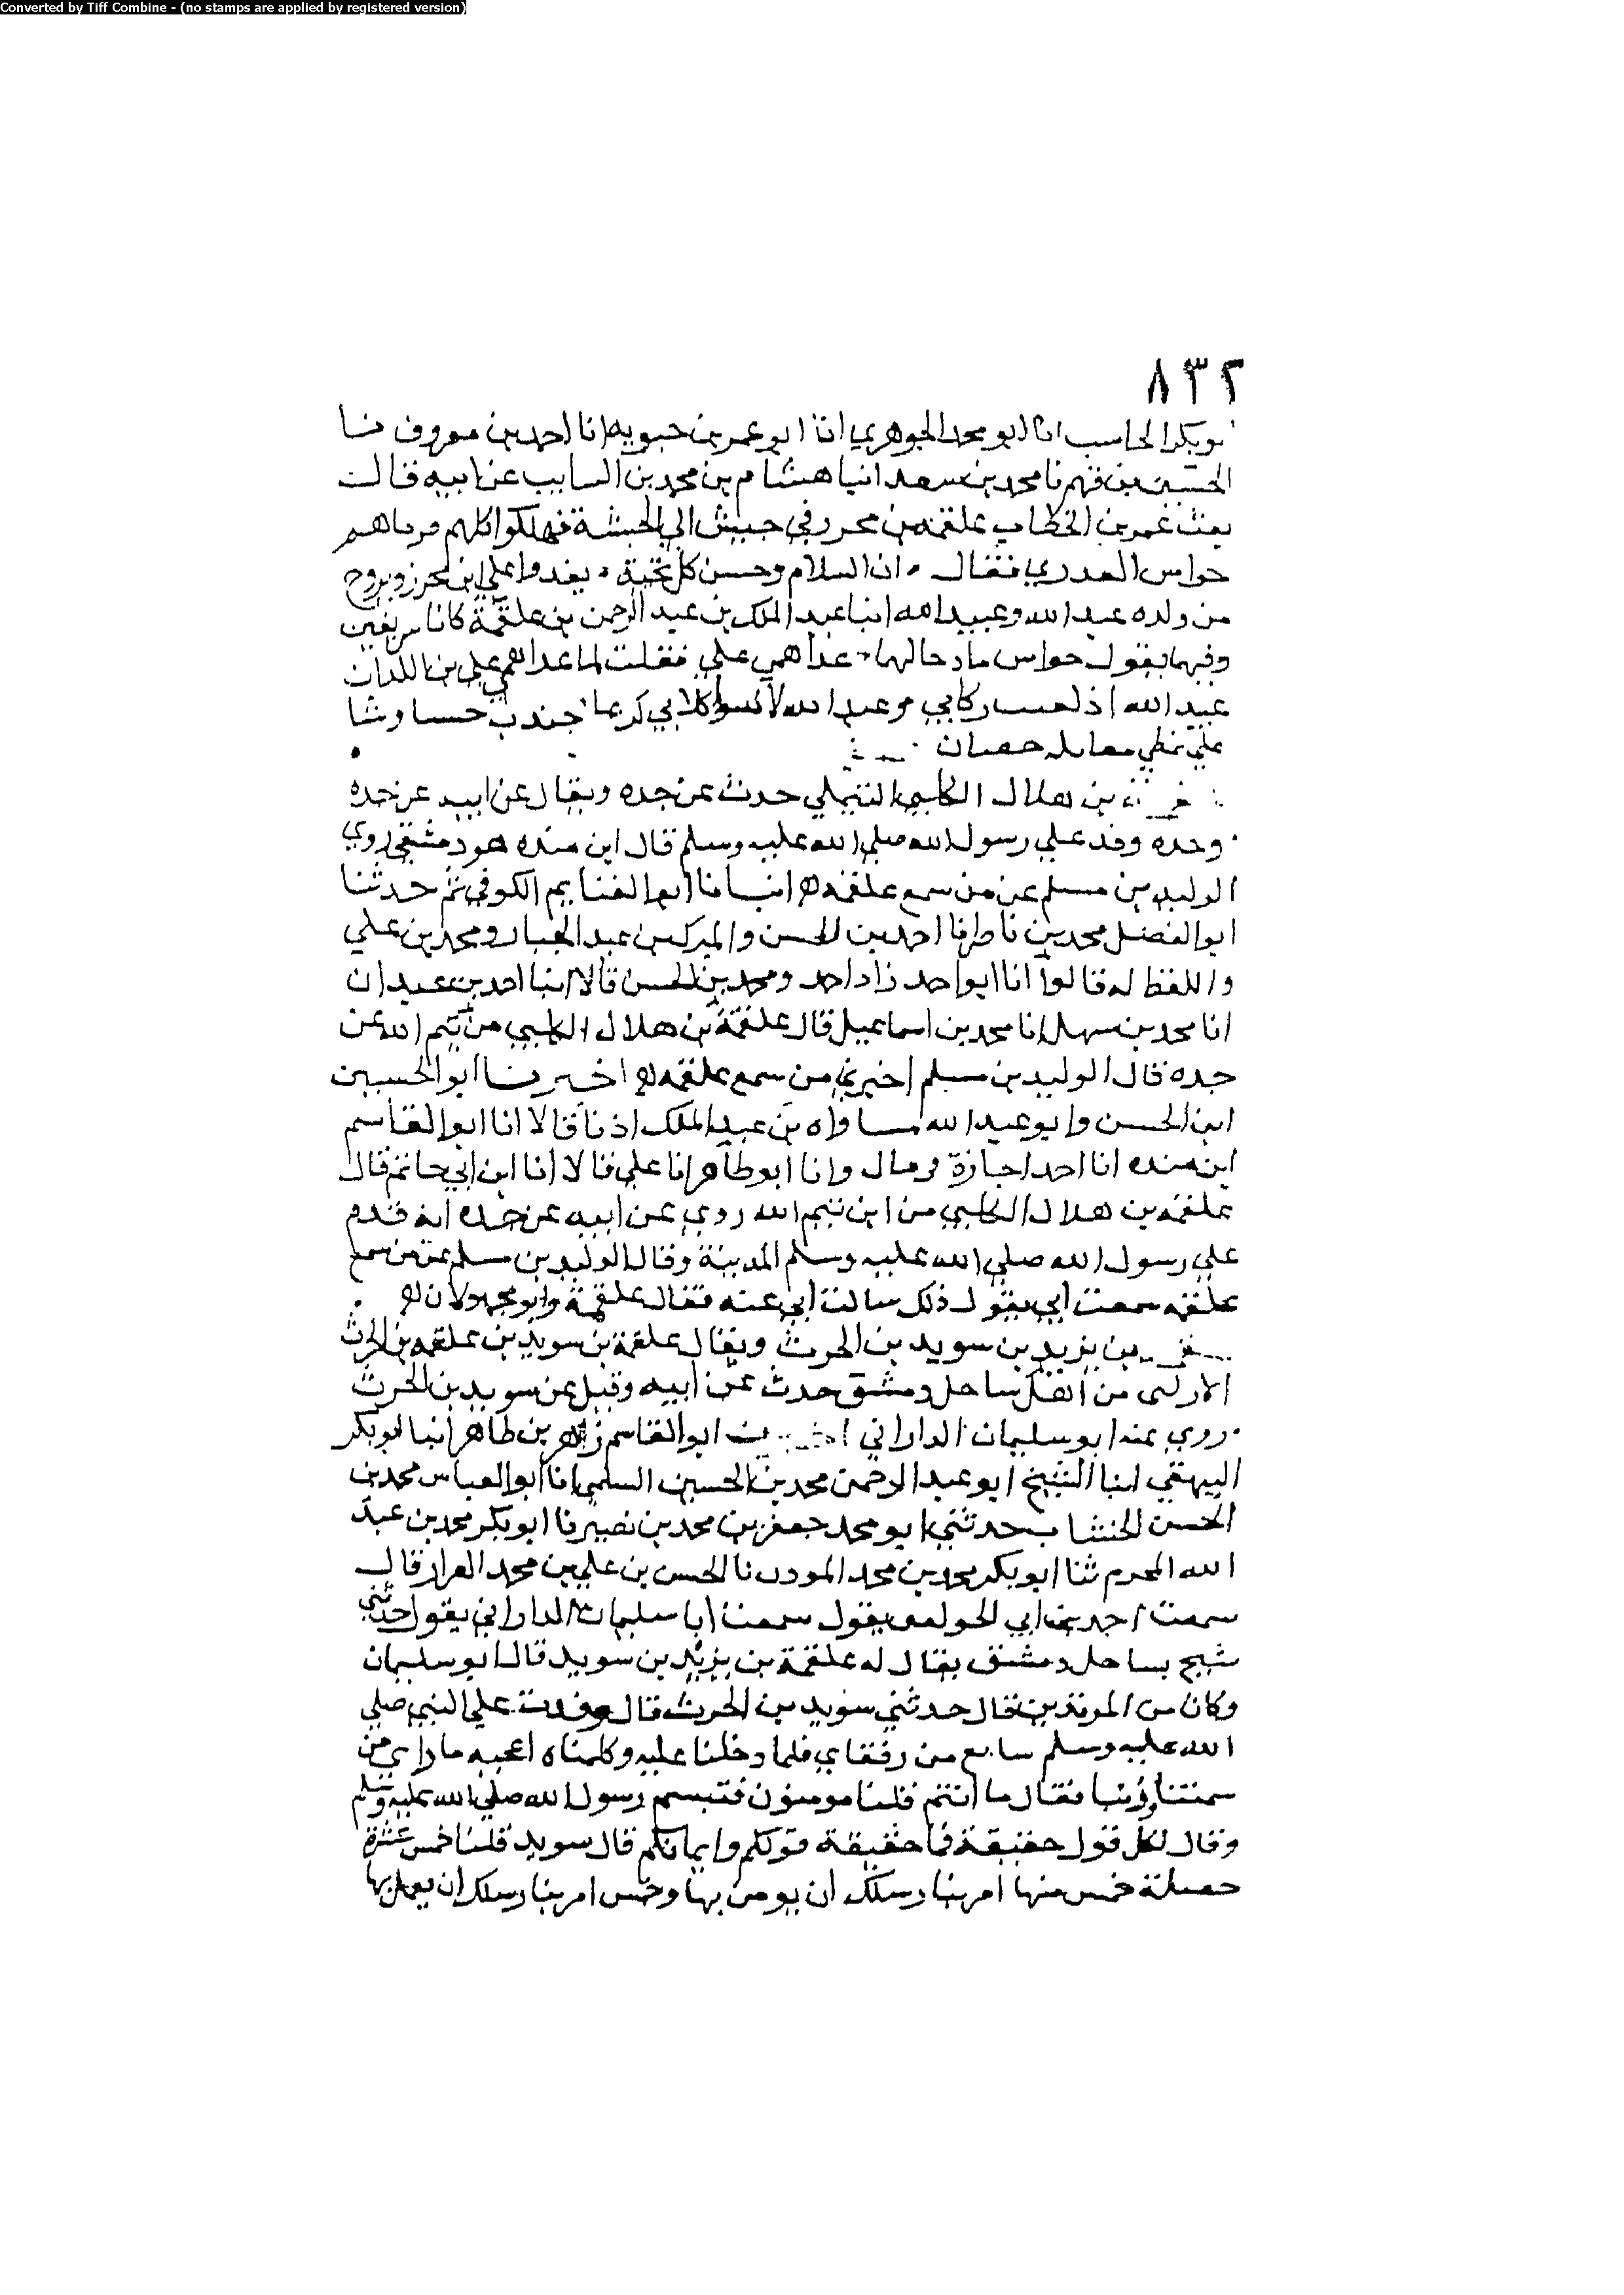 Converted by Tiff Combine - (no stamps are applied by registered version)
٨٣٢
بوبكر الحاسب انا ابو محمد الجوهري انا ابو عمر بن حبويه انا احمد بن معروف نا
الحسين بن فهم نا محمد بن سعد انبا هشام بن محمد بن السايب عن ابيه قالت
بعث عمر بن الخطاب علقمه بن محرز في جيش الي الحبشة فهلكوا كلهم فرثاهم
حواس العدري فقال ان السلام وحسن كل تحية يغدوا علي ابن محرز ويروح
من ولده عبد الله وعبيد الله ابنا عبد الملك بن عبد الرحمن بن علقمة كانا شريفين
وفيهما يقول حواس
عبيد الله اذ ركابي عبد الله كلابي كريما جندب حسا وشا
علي حصان
بن هلال الكلبي التيملي حدث عن جده ويقال عن ابيه عن جده
وجده وفد علي رسول الله صلي الله عليه وسلم قال ابن منده هو دمشقي روي
الوليد بن مسلم عن من سمع علقمه انبانا ابو الغنايم الكوفي ثم حدثنا
ابو الفضل محمد بن ناصر نا احمد بن الحسن والمبرك بن عبد الجبار ومحمد بن علي
واللفظ له قالوا انا ابو احمد زاد احمد ومحمد بن الحسن قالا انبا احمد بن عبدان
انا محمد بن سهل انا محمد بن اسماعيل قال علقمة بن هلال الكلبي من تيم الله عن
جده قال الوليد بن مسلم اخبرني من سمع علقمه اخبرنا ابو الحسين
ابن الحسن وابو عبد الله بن عبد الملك اذنا قالا انا ابو القاسم
ابن منده انا احمد اجازة قال وانا ابو طاهر انا علي قالا انا ابن ابي حاتم قال
علقمه بن هلال الكلبي من ابن تيم الله روي عن ابيه عن جده انه قدم
علي رسول الله صلي الله عليه وسلم المدينة وقال الوليد بن مسلم عن من سمع
علقمه سمعت ابي يقول ذلك سالت ابي عنه فقال علقمة وابو مجهولان
بن يزيد بن سويد بن الحرث ويقال علقمة بن سويد بن علقمه بن الحرث
من اهل ساحل دمشق حدث عن ابيه وقيل عن سويد بن الحرث
روي عنه ابو سليمان الداراني ابو القاسم زاهر بن طاهر انبا ابو بكر
البيهقي انبا الشيخ ابو عبد الرحمن محمد بن الحسين السلمي انا ابو العباس محمد بن
الحسن الخشاب حدثني ابو محمد جعفر بن محمد بن نصير نا ابو بكر محمد بن عبد
الله المحرم ثنا ابو بكر محمد بن محمد المودب نا الحسن بن علي بن محمد القزار قال
سمعت احمد بن ابي الحواري يقول سمعت ابا سليمان الداراني يقول حدثني
شيخ بساحل دمشق يقال له علقمة بن يزيد بن سويد قال ابو سليمان
وكان من المريدين قال حدثني سويد بن الحرث قال وفدت علي النبي صلي
الله عليه وسلم سابع من رفقاي فلما دخلنا عليه وكلمناه اعجبه ما راي من
سمتنا وزينا فقال ما انتم قلنا مومنون فتبسم رسول الله صلي الله عليه وسلم
وقال لكل قول حقيقة فما حقيقة قولكم وايمانكم قال سويد قلنا خمس عشرة
خصلة خمس منها امرتنا رسلك ان يومن بها وخمس امرتنا رسلك ان يعمل بها